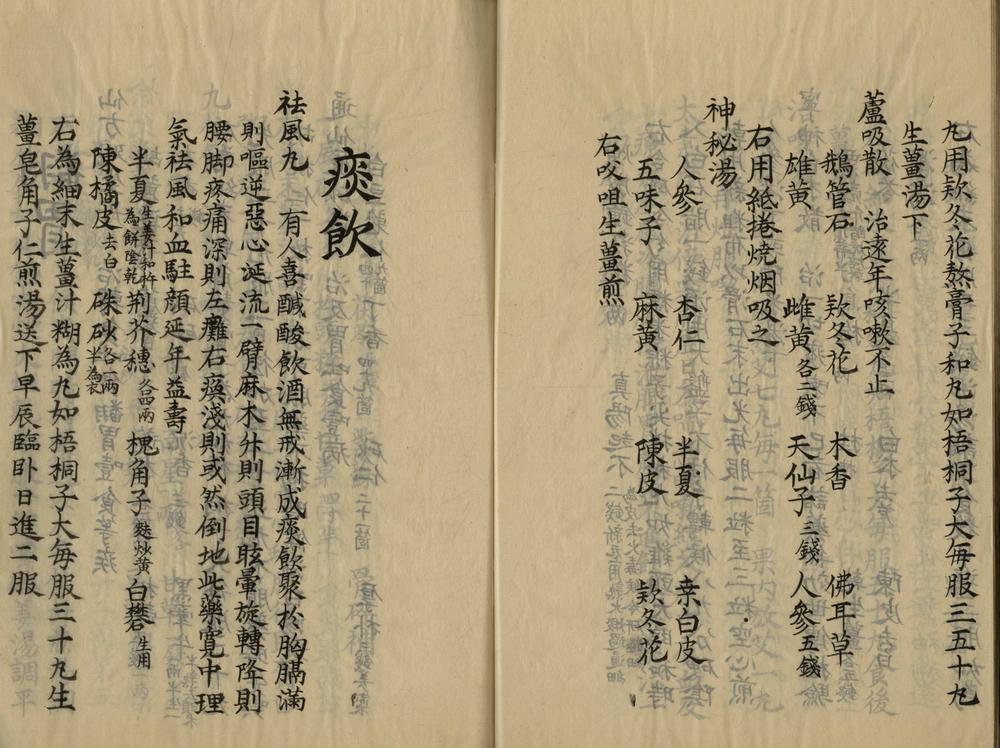 九用欵冬花熬膏子和九如梧桐子大每服三五十九
生薑湯下
蘆吸散　治遠年咳嗽不止
鵝管石　欵冬花　木香　佛耳草
雄黄　雌黄各二錢　天仙子三錢　人參五錢
右用紙捲焼烟吸之
神秘湯
人參　杏仁　半夏　桒白皮
五味子　麻黄　陳皮　欵冬花
右㕮咀生薑煎
痰飲
祛風九　有人喜醎酸飲酒無戒漸成痰飲聚於胸膈滿
則嘔逆惡心涎流一臂麻木升則頭目眩暈旋轉降則
腰脚疼痛深則左癱右瘓淺則或然倒地此藥寛中理
氣祛風和血駐顔延年益壽
半夏生姜汁和杵為餅陰乾　荆芥穗各四兩　槐角子麩炒黄　白礬生用
陳橘皮去白　硃砂各一兩半為衣
右為細末生薑汁糊為九如梧桐子大每服三十九生
薑皂角子仁煎湯送下早辰臨卧日進二服